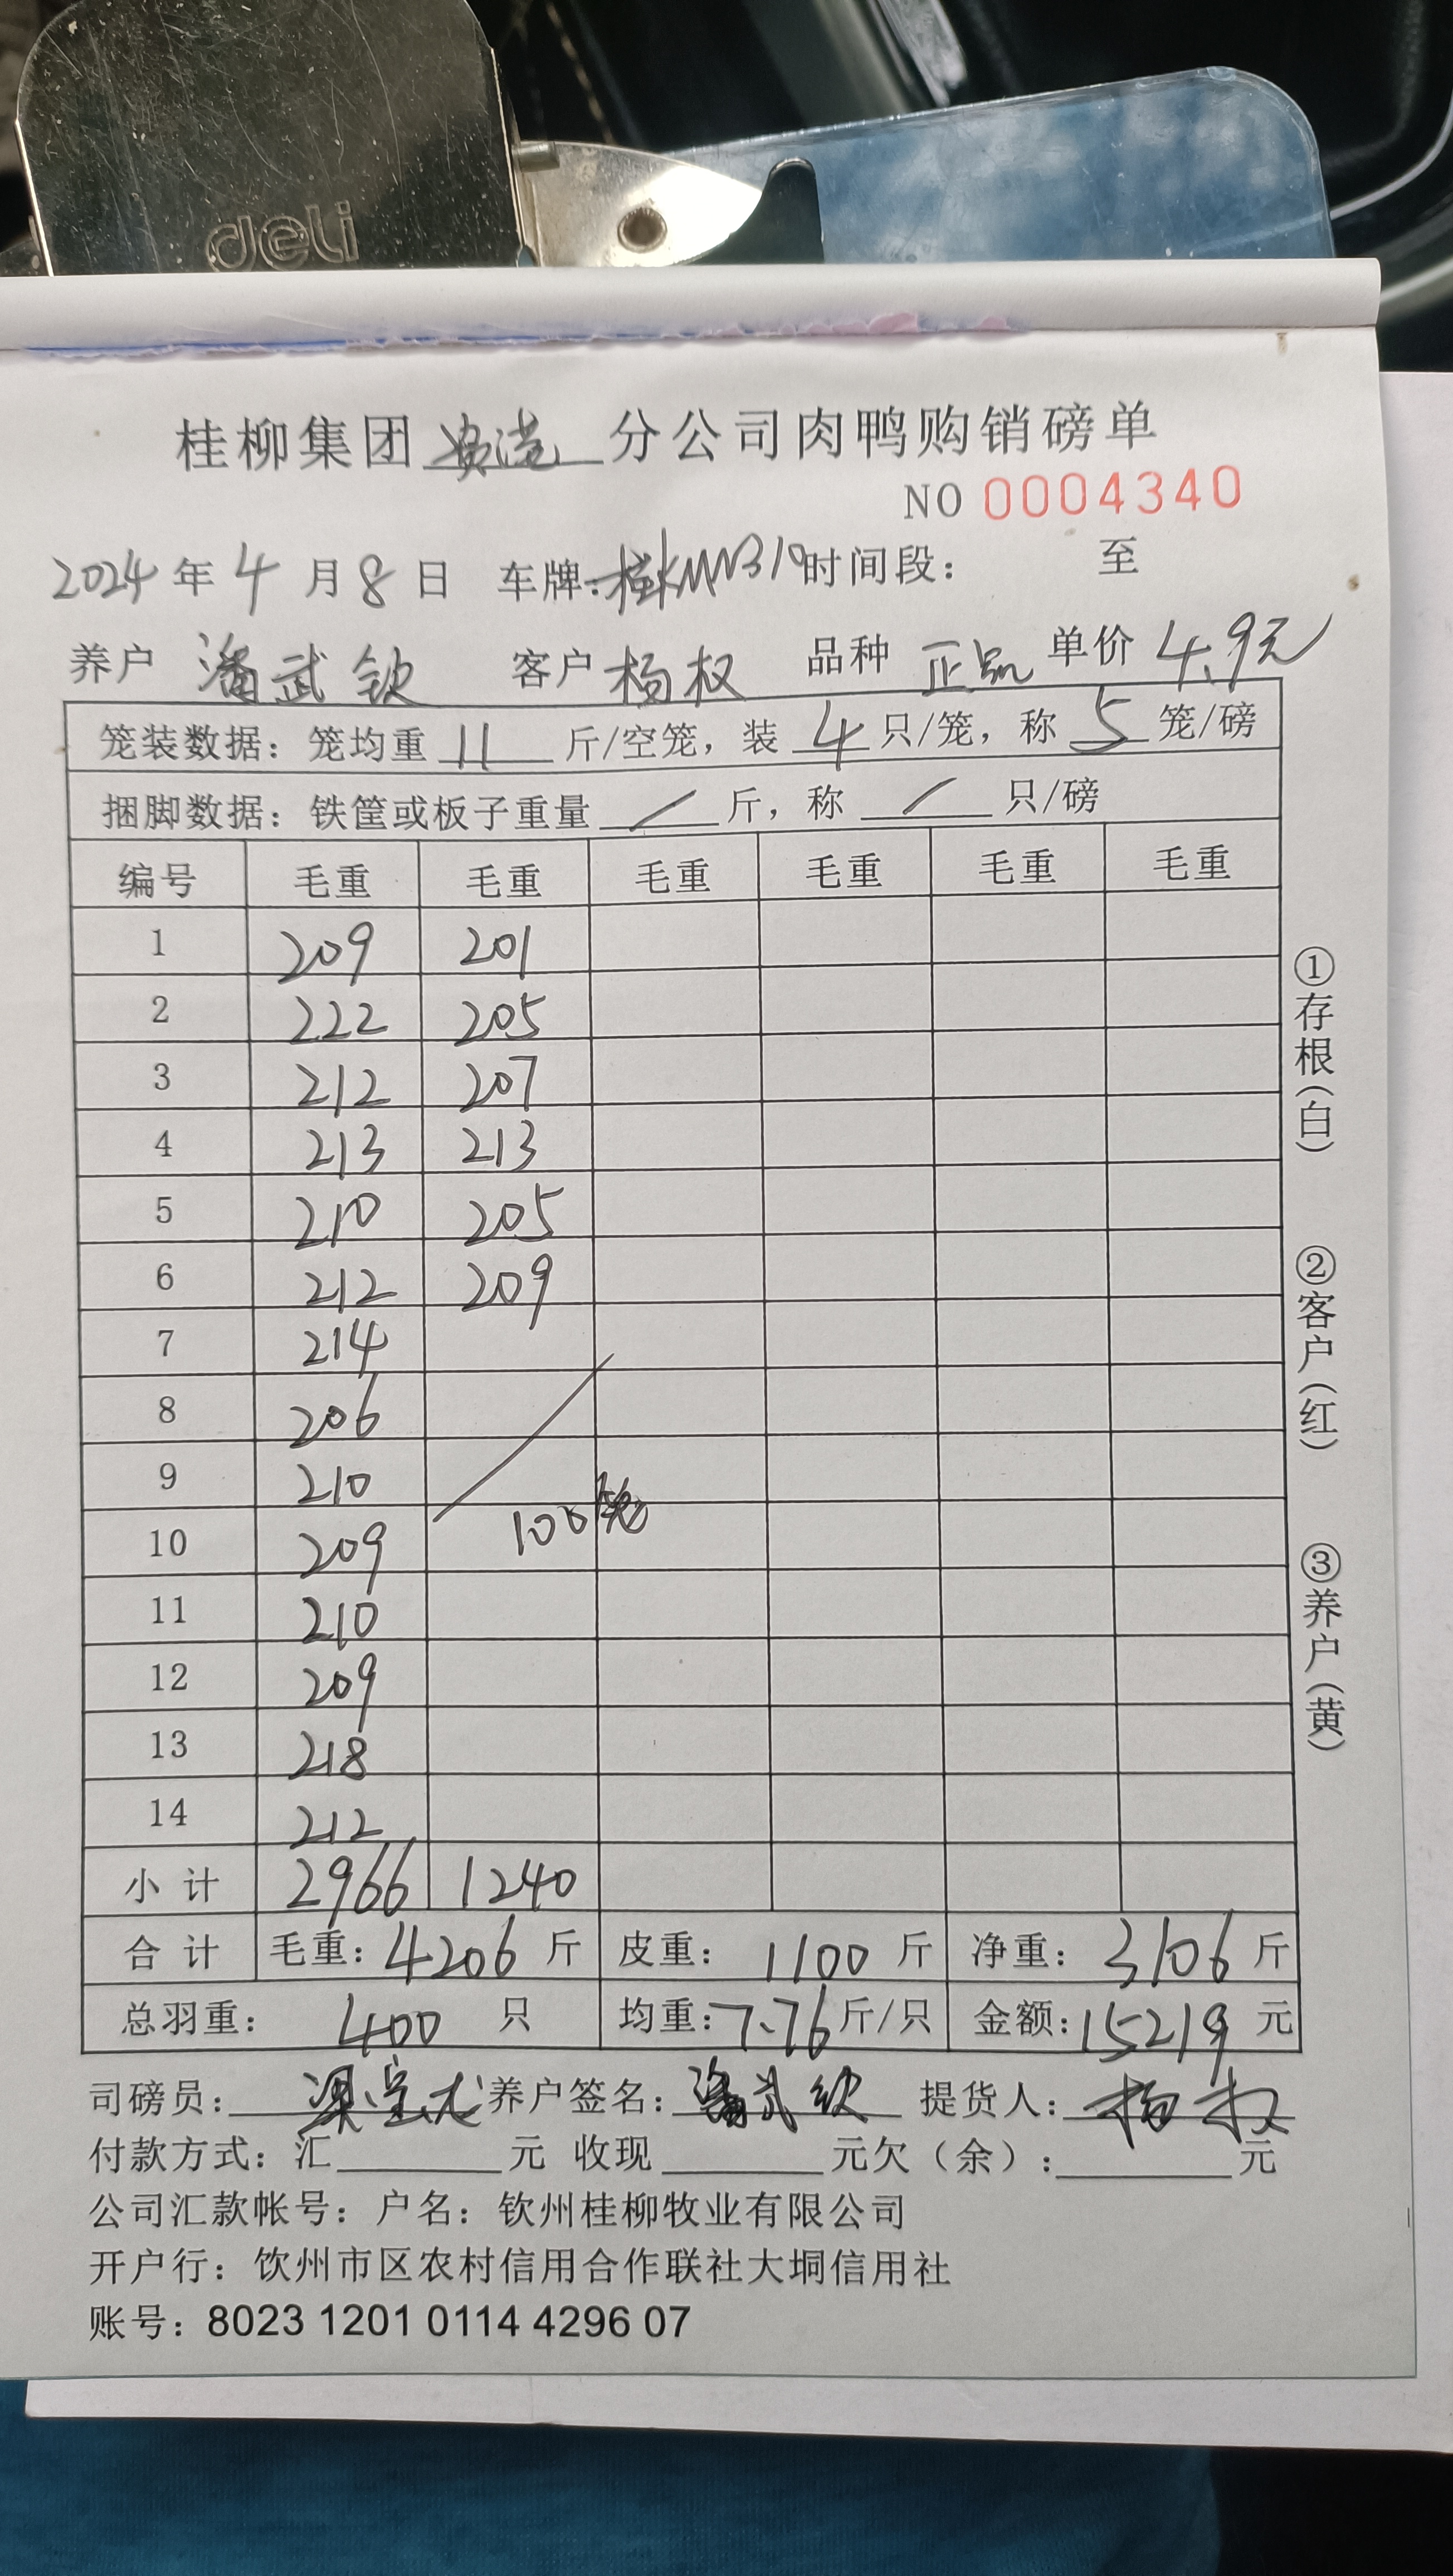 deli
桂柳集团贵港分公司肉鸭购销磅单
NO 0004340
2024年4月8日 车牌: 时间段: 至
养户 潘武钦 客户 杨权 品种 正品 单价 4.9元
笼装数据：笼均重 11 斤/空笼，装 4 只/笼，称 5 笼/磅
捆脚数据：铁筐或板子重量 / 斤，称 / 只/磅
编号 毛重 毛重 毛重 毛重 毛重 毛重
1 209 201
2 222 205
3 212 207
4 213 213
5 210 205
6 212 209
7 214
8 206
9 210
100笼
10 209
11 210
12 209
13 218
14 212
小计 2966 1240
合计 毛重：4206斤 皮重：1100斤 净重：3106斤
总羽重：400 只 均重：7.76斤/只 金额：15219元
司磅员： 养户签名：潘武钦 提货人：杨权
付款方式：汇 元 收现 元欠（余）： 元
公司汇款帐号：户名：钦州桂柳牧业有限公司
开户行：饮州市区农村信用合作联社大垌信用社
账号：8023 1201 0114 4296 07
①存根（白）
②客户（红）
③养户（黄）